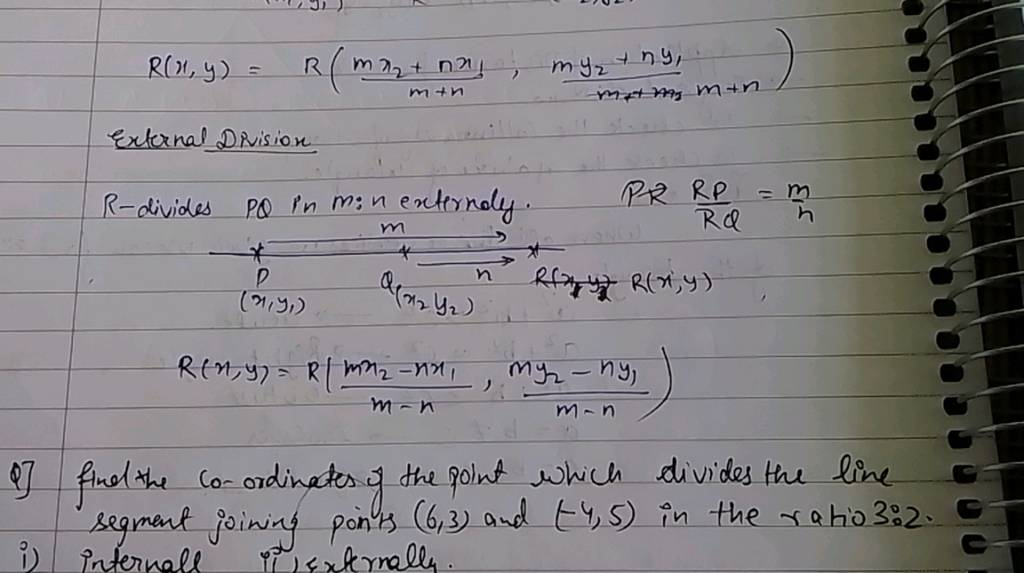 R(x, y) = R( mx₂ + nx₁ / m+n , my₂ + ny₁ / m+n )
External Division
R-divides PQ in m:n externaly. PR RP/RQ = m/n
m
P Q n R(x, y)
(x₁y₁) (x₂ y₂)
R(x, y) = R( mx₂ - nx₁ / m - n , my₂ - ny₁ / m - n )
Q] find the co-ordinates of the point which divides the line
segment joining points (6,3) and (-4,5) in the ratio 3:2.
i) internall ii) externally.